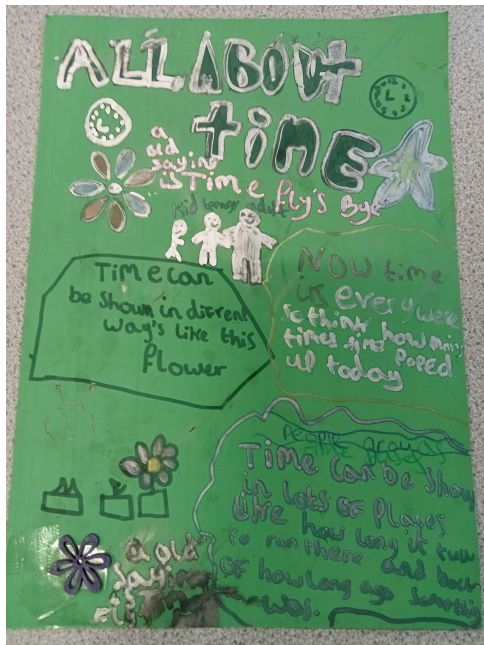 ALL ABOUT
tiME
a
old
saying
is Time fly's By
kid teenager adult
Time can
be shown in difrent
way's like this
flower
NOW time
is everywere
so think how many
times time poped
up today
Time can be show
in lots of places
like how long it tuck
to run there and back
Of how long ago something
was.
a old
saying